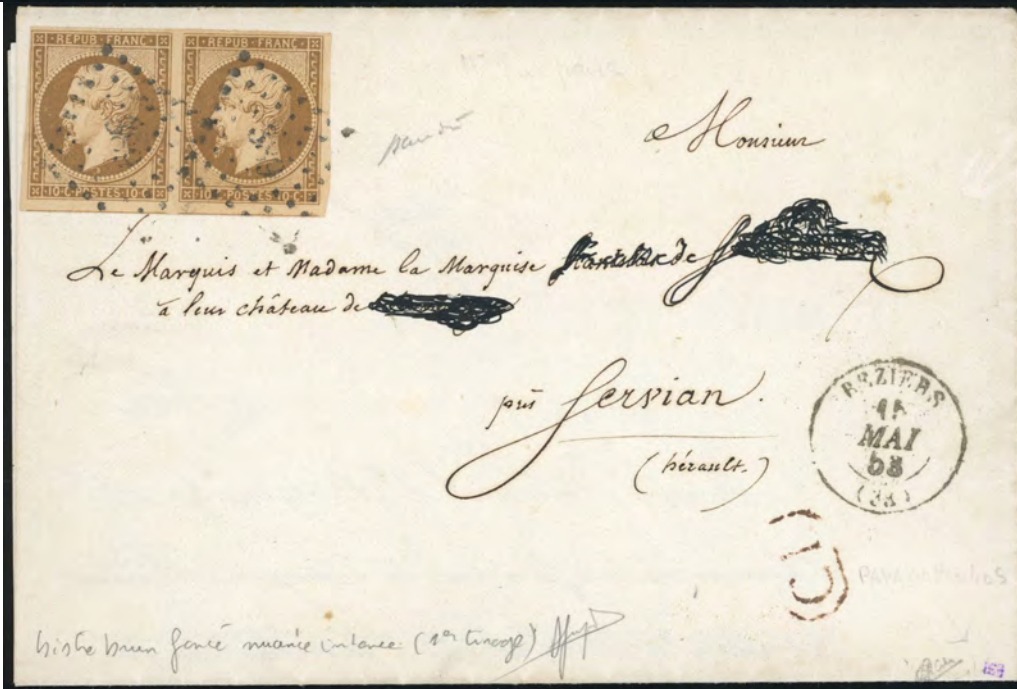 REPUB FRANC REPUB FRANC
10 C POSTES 10 C 10 C POSTES 10 C
Monsieur
Le Marquis et Madame la Marquise de
à leur château de
près Servian.
(hérault.)
BEZIERS
MAI
53
bistre brun foncé nuance intense (1er tirage)